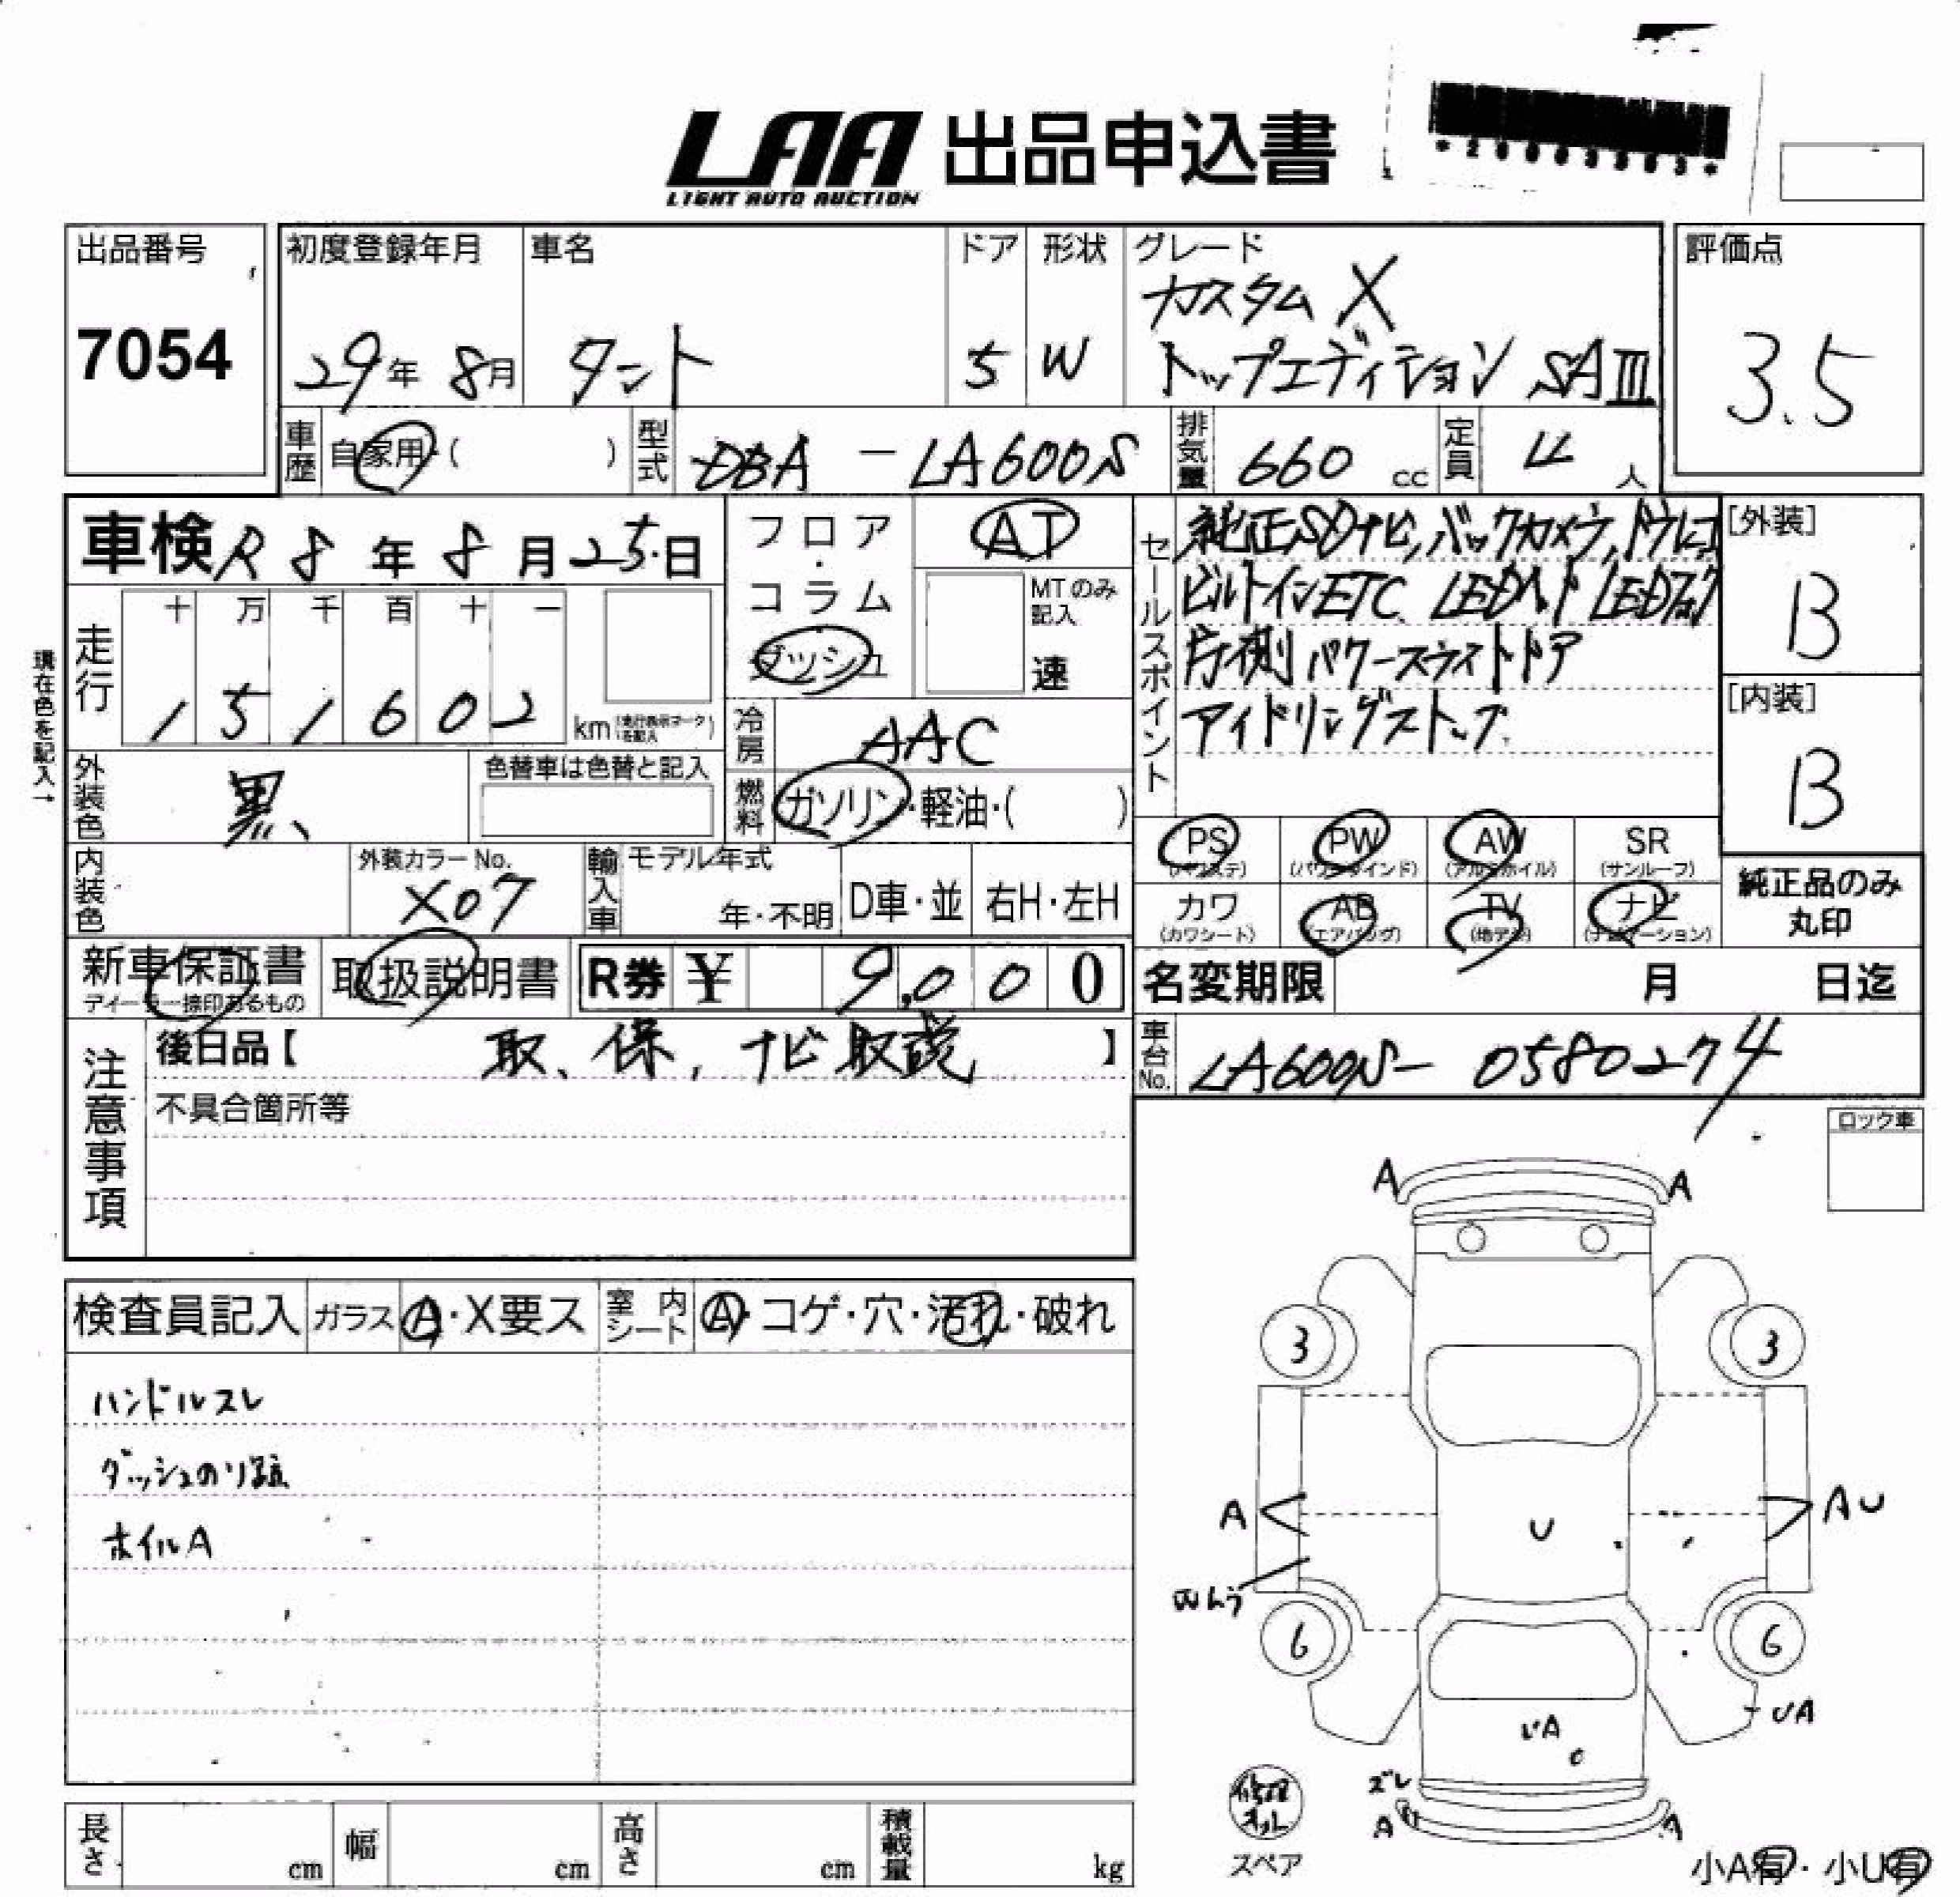 LAA 出品申込書
LIGHT AUTO AUCTION
出品番号
7054
初度登録年月
29年 8月
車名
タント
ドア
5
形状
W
グレード
カスタム X
トップエディション SAⅢ
評価点
3.5
車歴 自家用・( )
型式 DBA - LA600S
排気量 660 cc
定員 4 人
車検 R8年 8月 25日
フロア・コラム
ダッシュ
AT
MTのみ記入
速
走行
十 万 千 百 十 一
1 5 1 6 0 2 km
現在色を記入→
冷房 AAC
燃料 ガソリン・軽油・( )
外装色 黒
色替車は色替と記入
内装色
外装カラーNo.
X07
輸入車 モデル年式
年・不明
D車・並
右H・左H
セールスポイント
純正SDナビ, バックカメラ, ドラレコ
ビルトインETC LEDヘッド LEDフォグ
片側パワースライドドア
アイドリングストップ
[外装]
B
[内装]
B
PS (パワステ)
PW (パワーウインド)
AW (アルミホイル)
SR (サンルーフ)
カワ (カワシート)
AB (エアバッグ)
TV (地デジ)
ナビ (ナビゲーション)
純正品のみ
丸印
新車保証書
ディーラー捺印あるもの
取扱説明書
R券 ¥ 9,000
名変期限 月 日迄
車台No. LA600S- 0580274
注意事項
後日品【 取、保, ナビ取説 】
不具合箇所等
ロック車
検査員記入
ガラス A・X要ス
室内シート A・コゲ・穴・汚れ・破れ
ハンドルスレ
ダッシュのり跡
ホイルA
A A
3 3
A U A U
6 6
UA
UA
ズレ
A A
修理キット
スペア
小A有・小U有
長さ cm
幅 cm
高さ cm
積載量 kg